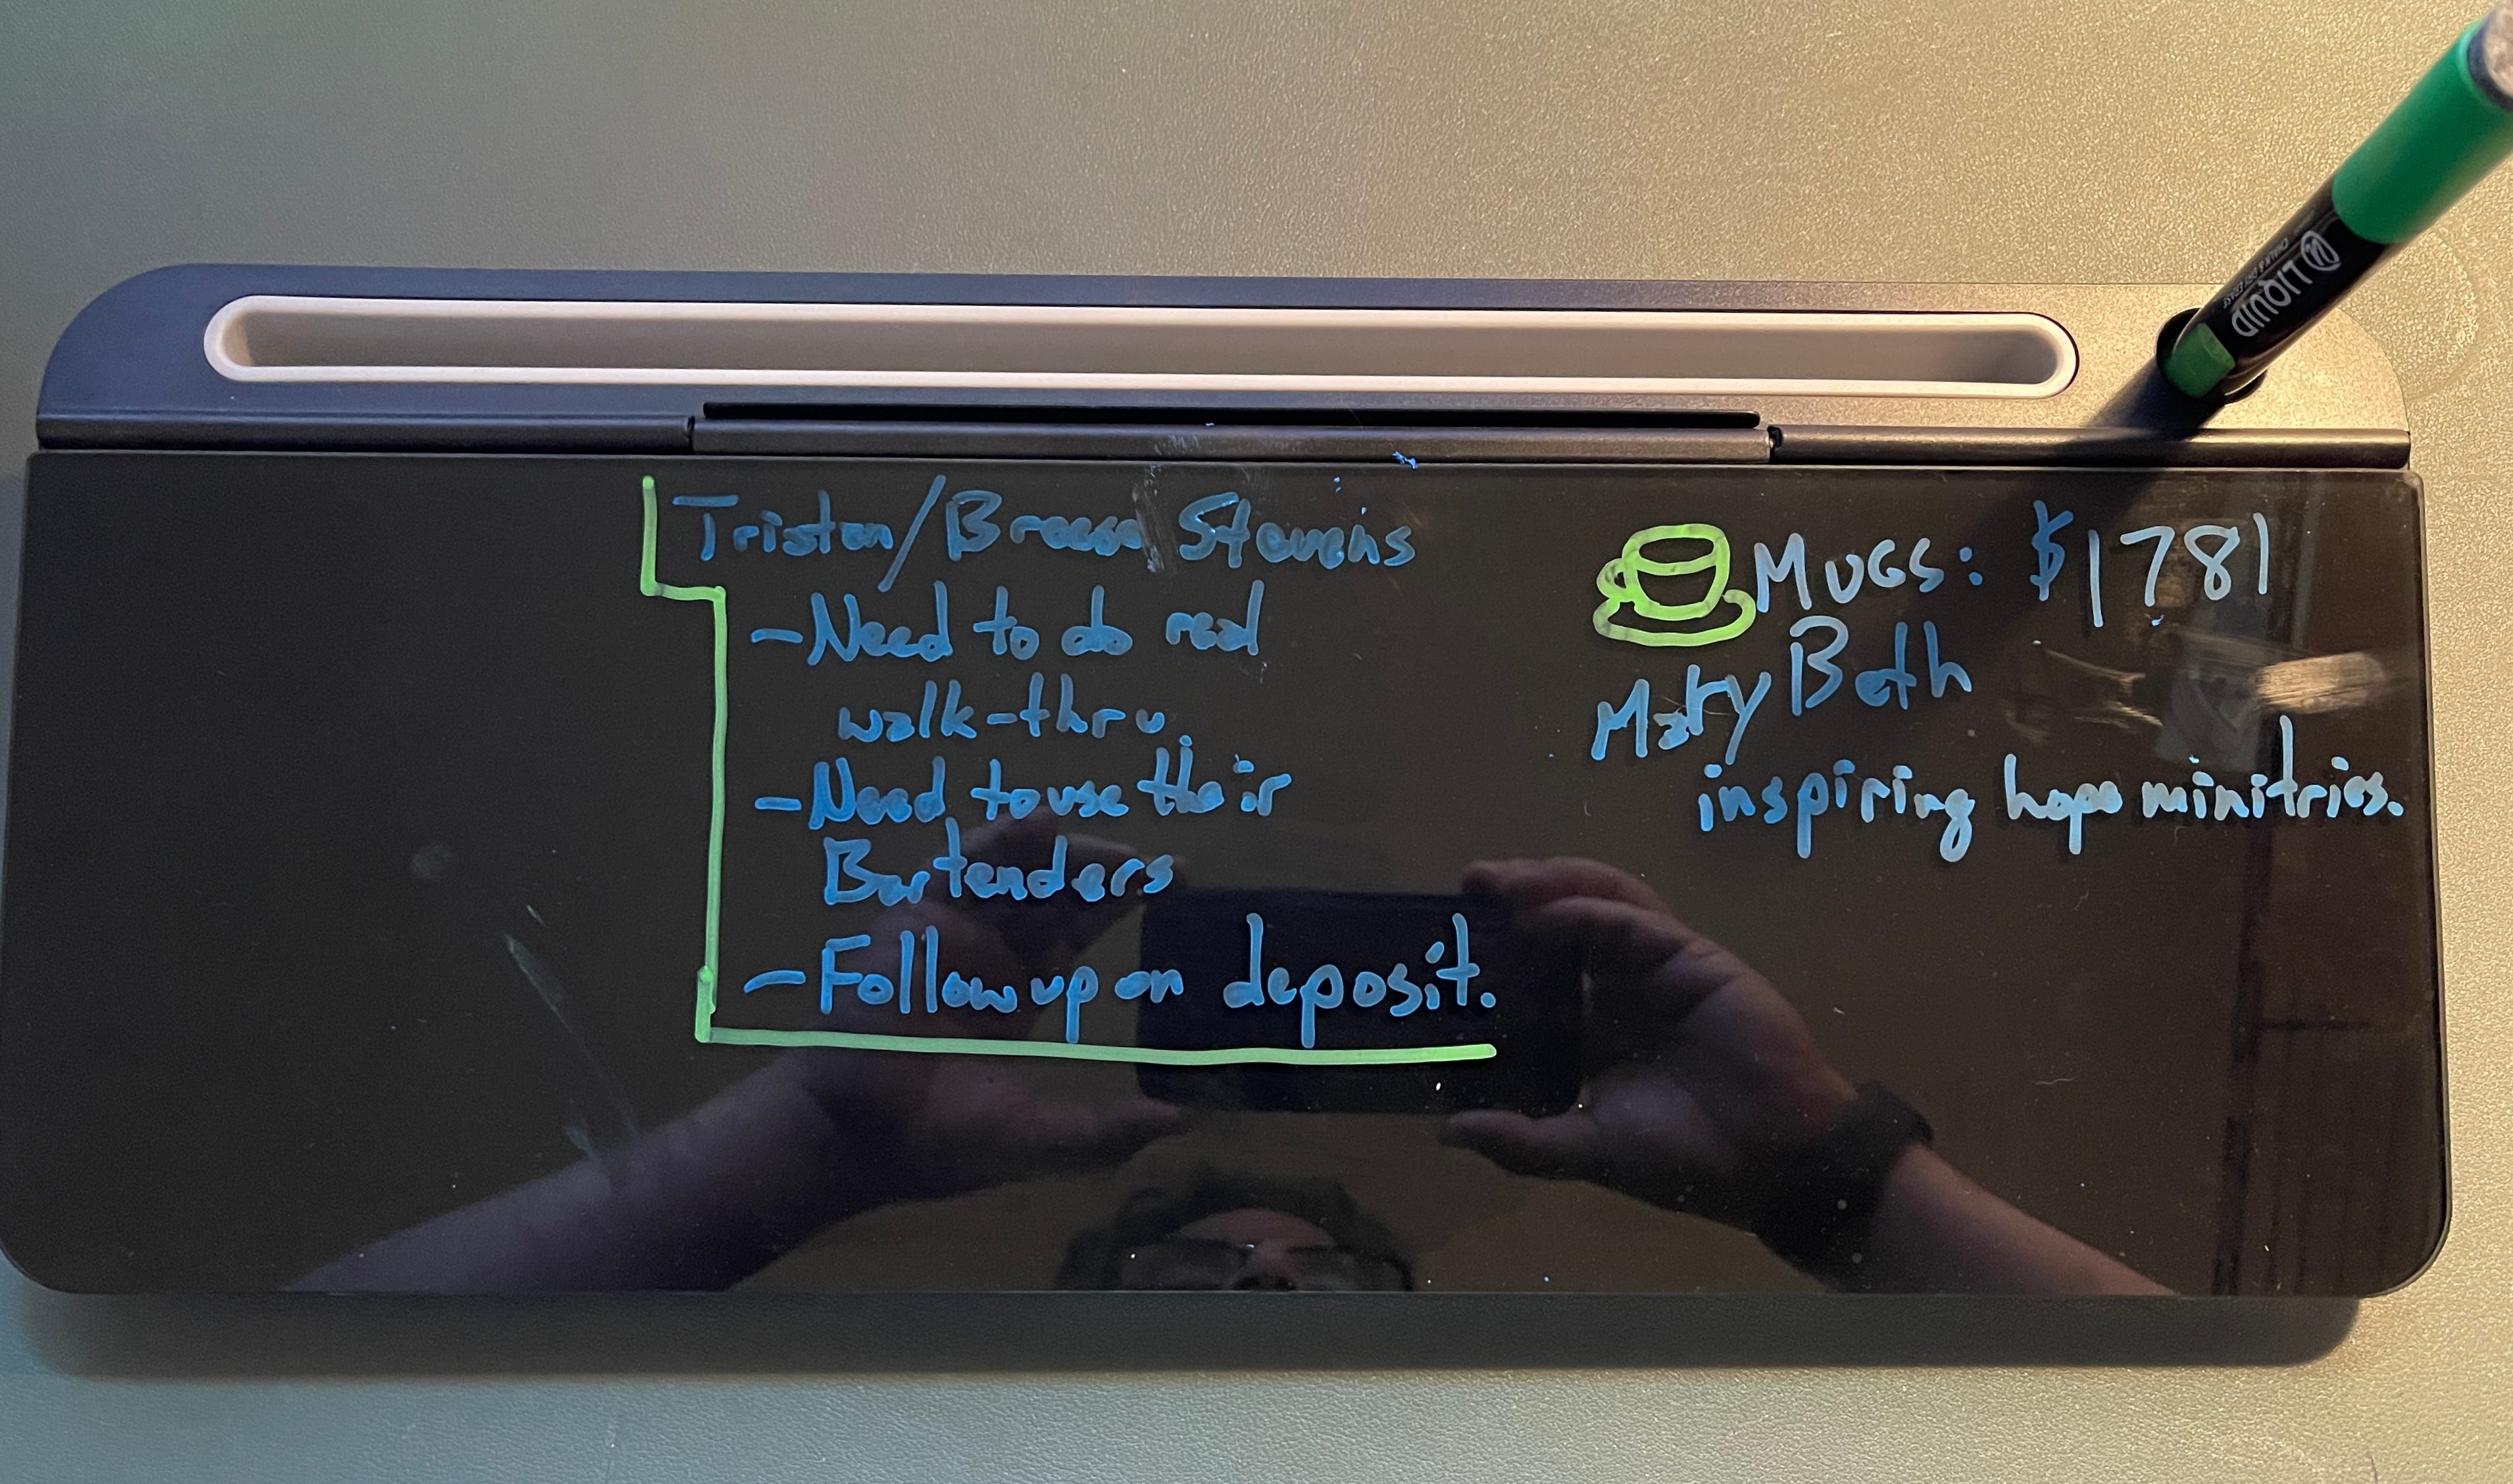 Tristan/Breese Stevens
-Need to do real
walk-thru.
-Need to use their
Bartenders
-Follow up on deposit.
MUGS: $1781
Mary Beth
inspiring hope minitries.
LIQUID